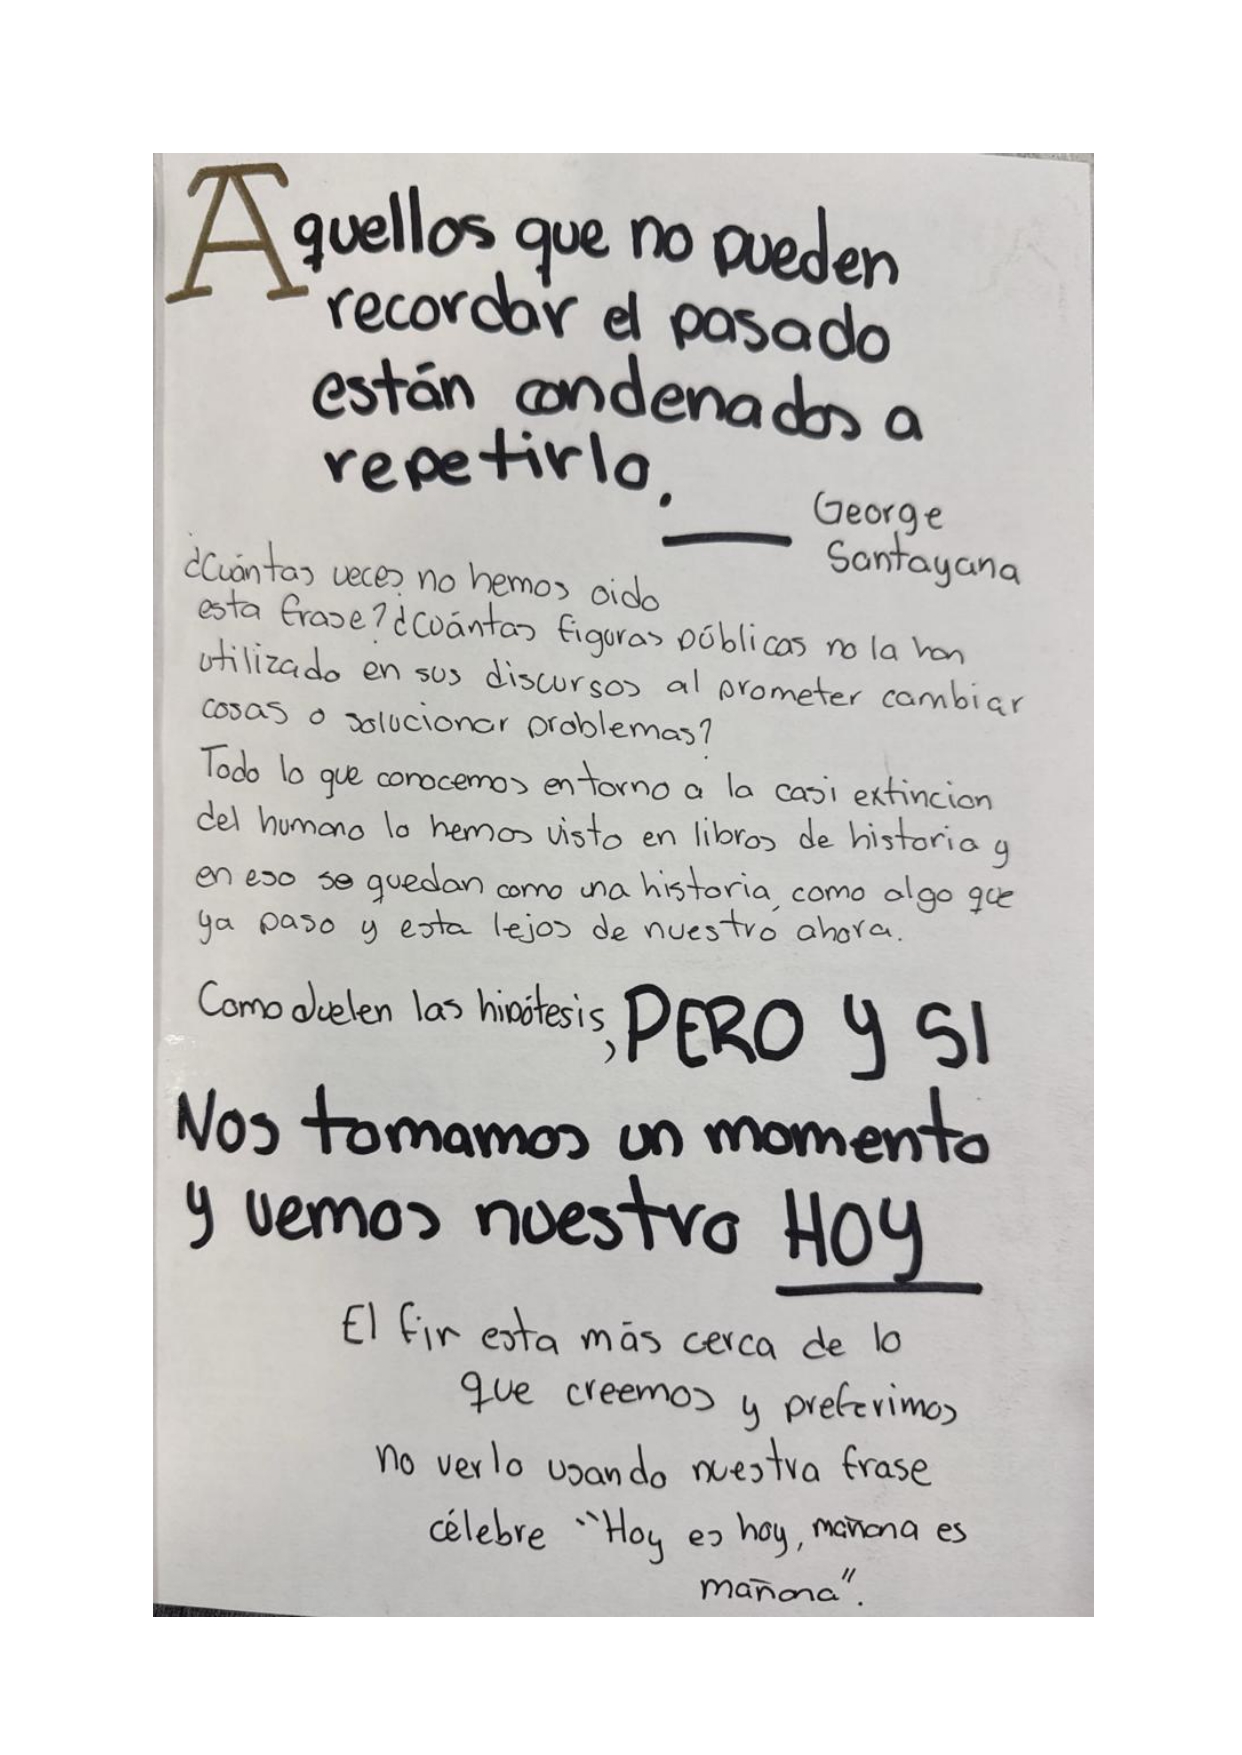 Aquellos que no pueden
recordar el pasado
están condenados a
repetirlo.
George
Santayana
¿Cuántas veces no hemos oido
esta frase? ¿Cuántas figuras públicas no la han
utilizado en sus discursos al prometer cambiar
cosas o solucionar problemas?
Todo lo que conocemos entorno a la casi extincion
del humano lo hemos visto en libros de historia y
en eso se quedan como una historia, como algo que
ya paso y esta lejos de nuestro ahora.
Como duelen las hipótesis, PERO Y SI
Nos tomamos un momento
y vemos nuestro HOY
El fin esta más cerca de lo
que creemos y preferimos
no verlo usando nuestra frase
célebre "Hoy es hoy, mañana es
mañana".